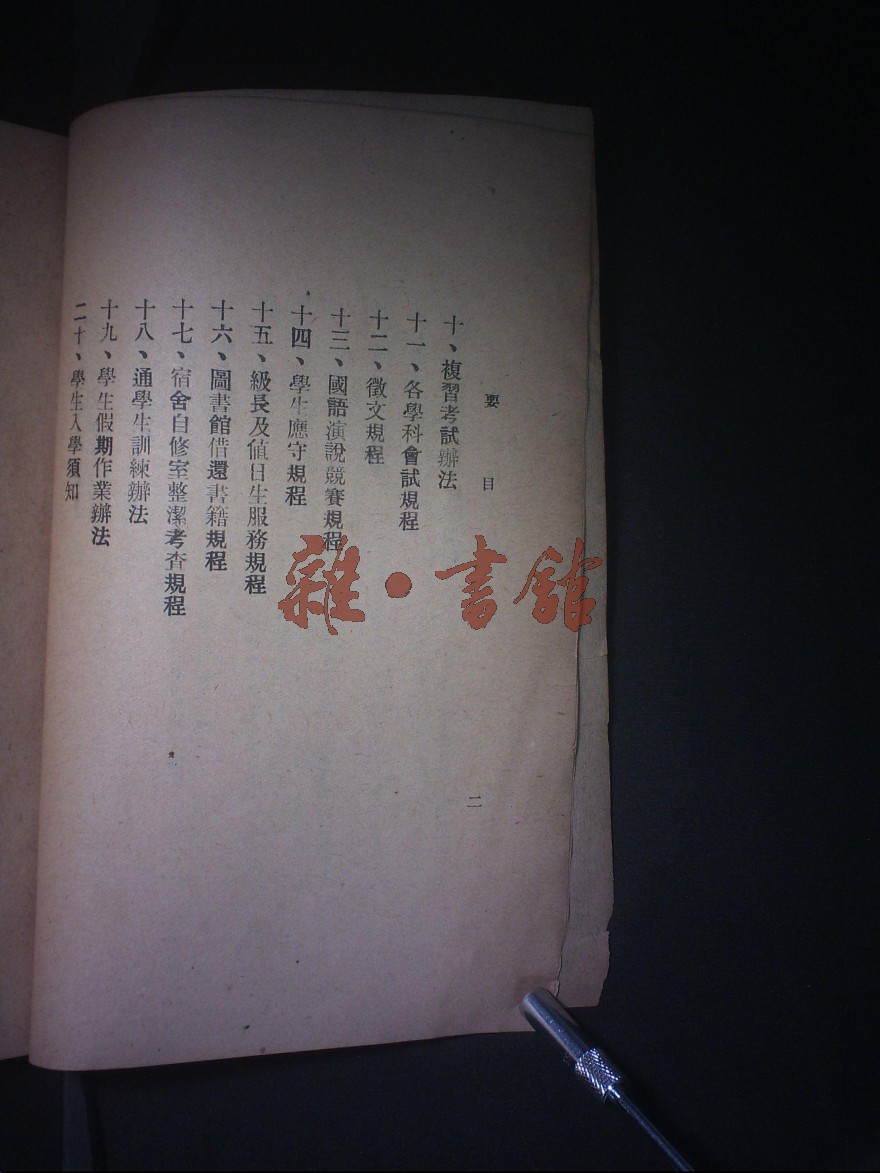 要目
十、複習考試辦法
十一、各學科會試規程
十二、徵文規程
十三、國語演說競賽規程
十四、學生應守規程
十五、級長及値日生服務規程
十六、圖書館借還書籍規程
十七、宿舍自修室整潔考查規程
十八、通學生訓練辦法
十九、學生假期作業辦法
二十、學生入學須知
二
雜·書館